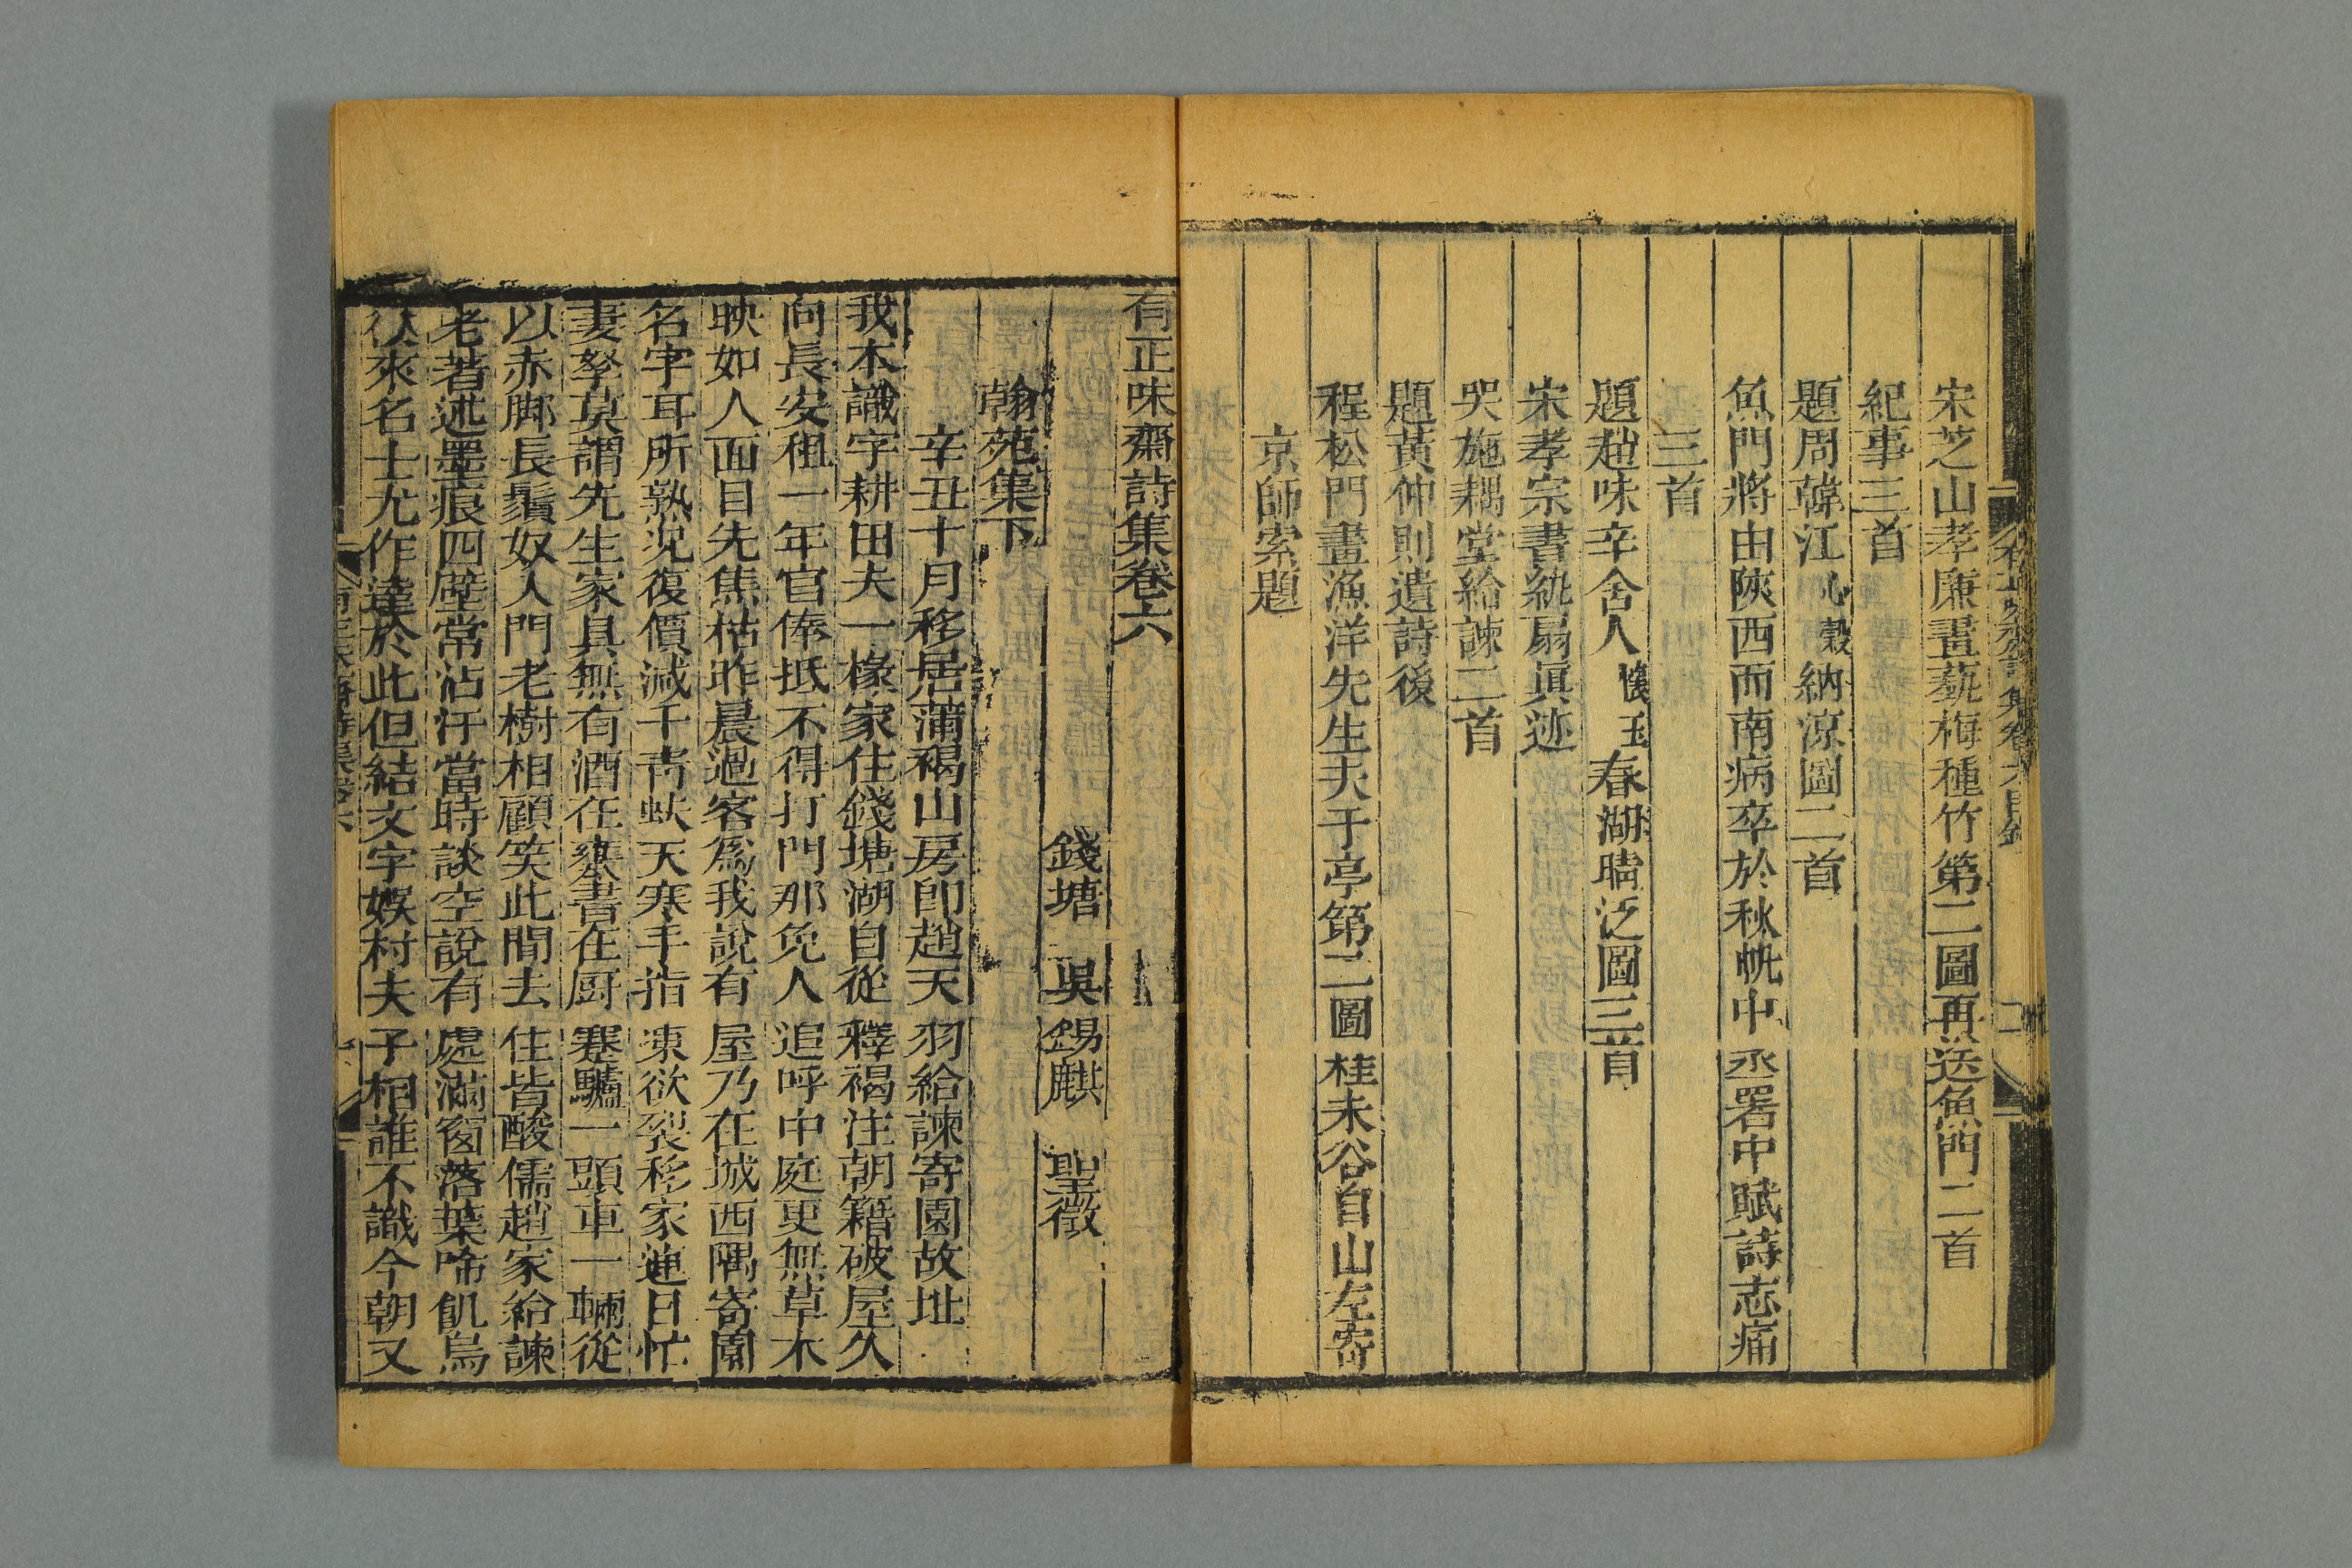 宋芝山孝廉畫藝梅種竹第二圖再送魚門二首
紀事三首
題周韓江心穀納涼圖二首
魚門將由陝西而南病卒於秋帆中丞署中賦詩志痛
三首
題趙味辛舍人懷玉春湖晴泛圖三首
宋孝宗書紈扇眞迹
哭施耦堂給諫二首
題黃仲則遺詩後
程松門畫漁洋先生夫于亭第二圖桂未谷自山左寄
京師索題
有正味齋詩集卷六
錢塘 吳錫麒 聖徵
翰苑集下
辛丑十月移居蒲褐山房卽趙天羽給諫寄園故址
我本識字耕田夫一椽家住錢塘湖自從釋褐注朝籍破屋久
向長安租一年官俸抵不得打門那免人追呼中庭更無草木
映如人面目先焦枯昨晨過客爲我說有屋乃在城西隅寄園
名字耳所熟況復價減千靑蚨天寒手指凍欲裂移家連日忙
妻孥莫謂先生家具無有酒在褰書在厨蹇驢一頭車一輛從
以赤脚長鬚奴入門老樹相顧笑此間去住皆酸儒趙家給諫
老著述墨痕四壁常沾汙當時談空說有處滿窗落葉啼飢烏
從來名士尤作達於此但結文字娛村夫子相誰不識今朝又